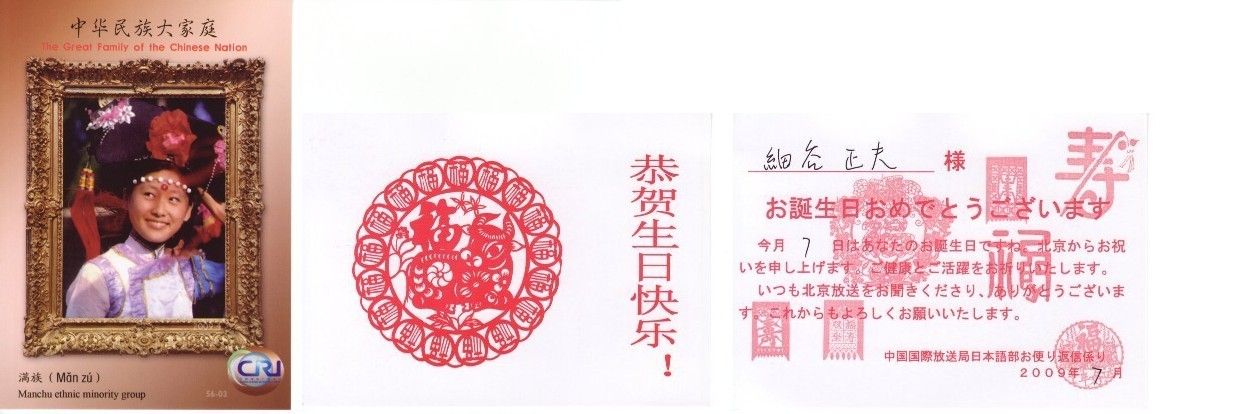 中华民族大家庭
The Great Family of the Chinese Nation
CRI
满族（Mǎn zú）
Manchu ethnic minority group
56-03
恭贺生日快乐！
福
細谷 正夫 様
寿
福
お誕生日おめでとうございます
今月 7 日はあなたのお誕生日ですね。北京からお祝
いを申し上げます。ご健康とご活躍をお祈りいたします。
いつも北京放送をお聞きくださり、ありがとうございま
す。これからもよろしくお願いいたします。
中国国際放送局日本語部お便り返信係り
2009年 7 月